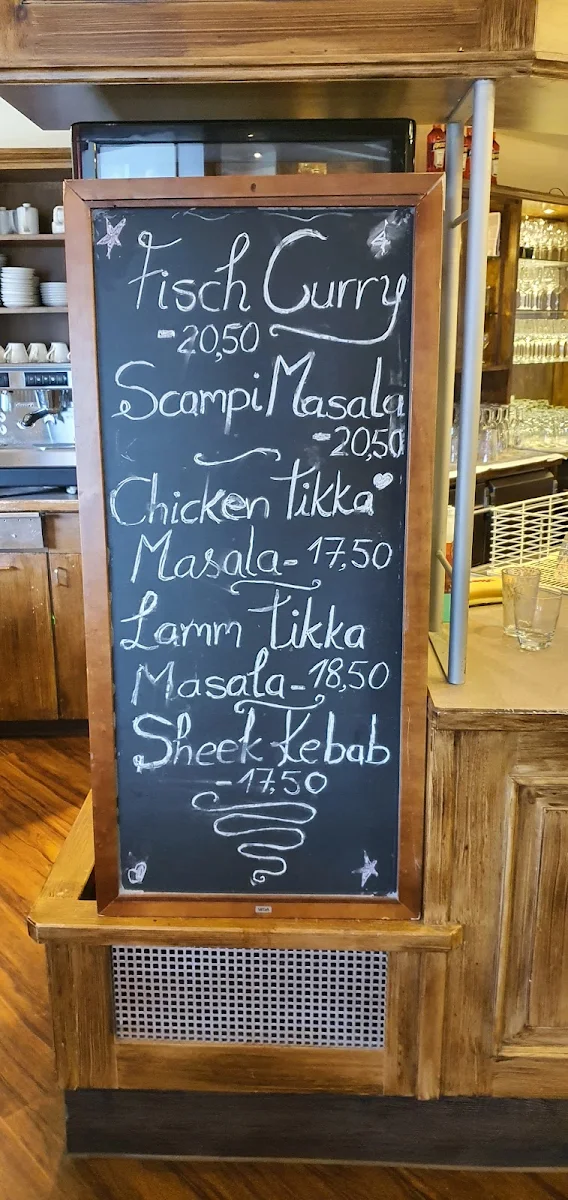 Fisch Curry
-20,50
Scampi Masala
-20,50
Chicken Tikka
Masala- 17,50
Lamm Tikka
Masala- 18,50
Sheek Kebab
-17,50